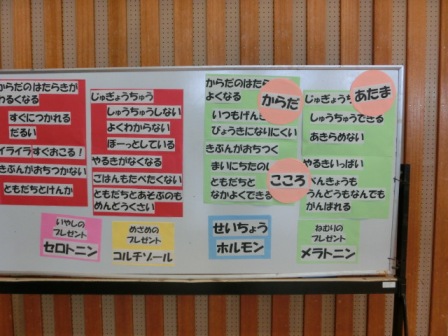 からだのはたらきが
わるくなる
すぐにつかれる
だるい
イライラすぐおこる！
きぶんがおちつかない
ともだちとけんか
じゅぎょうちゅう
しゅうちゅうしない
よくわからない
ぼーっとしている
やるきがなくなる
ごはんもたべたくない
ともだちとあそぶのも
めんどうくさい
からだのはたら
よくなる
からだ
いつもげんき
びょうきになりにくい
きぶんがおちつく
まいにちたの
こころ
ともだちと
なかよくできる
じゅぎょうち
あたま
しゅうちゅうできる
あきらめない
やるきいっぱい
べんきょうも
うんどうもなんでも
がんばれる
いやしの
プレゼント
セロトニン
めざめの
プレゼント
コルチゾール
せいちょう
ホルモン
ねむりの
プレゼント
メラトニン